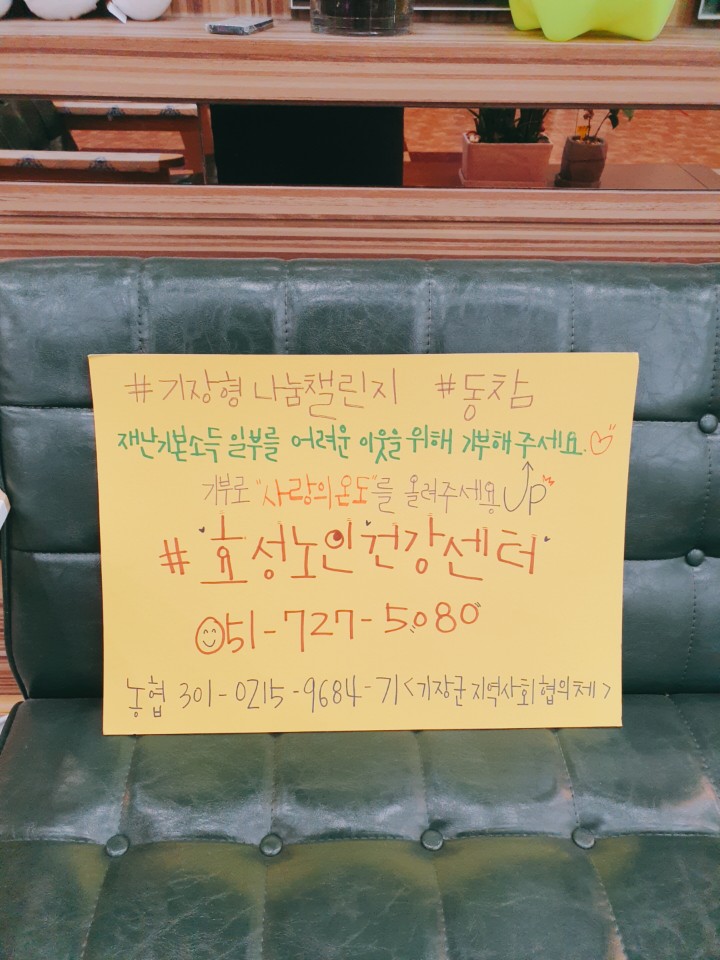 #기장형 나눔챌린지 #동참
재난기본소득 일부를 어려운 이웃을 위해 기부해 주세요.
기부로 "사랑의온도"를 올려주세용 UP
#효성노인건강센터
051-727-5080
농협 301-0215-9684-71<기장군지역사회협의체>